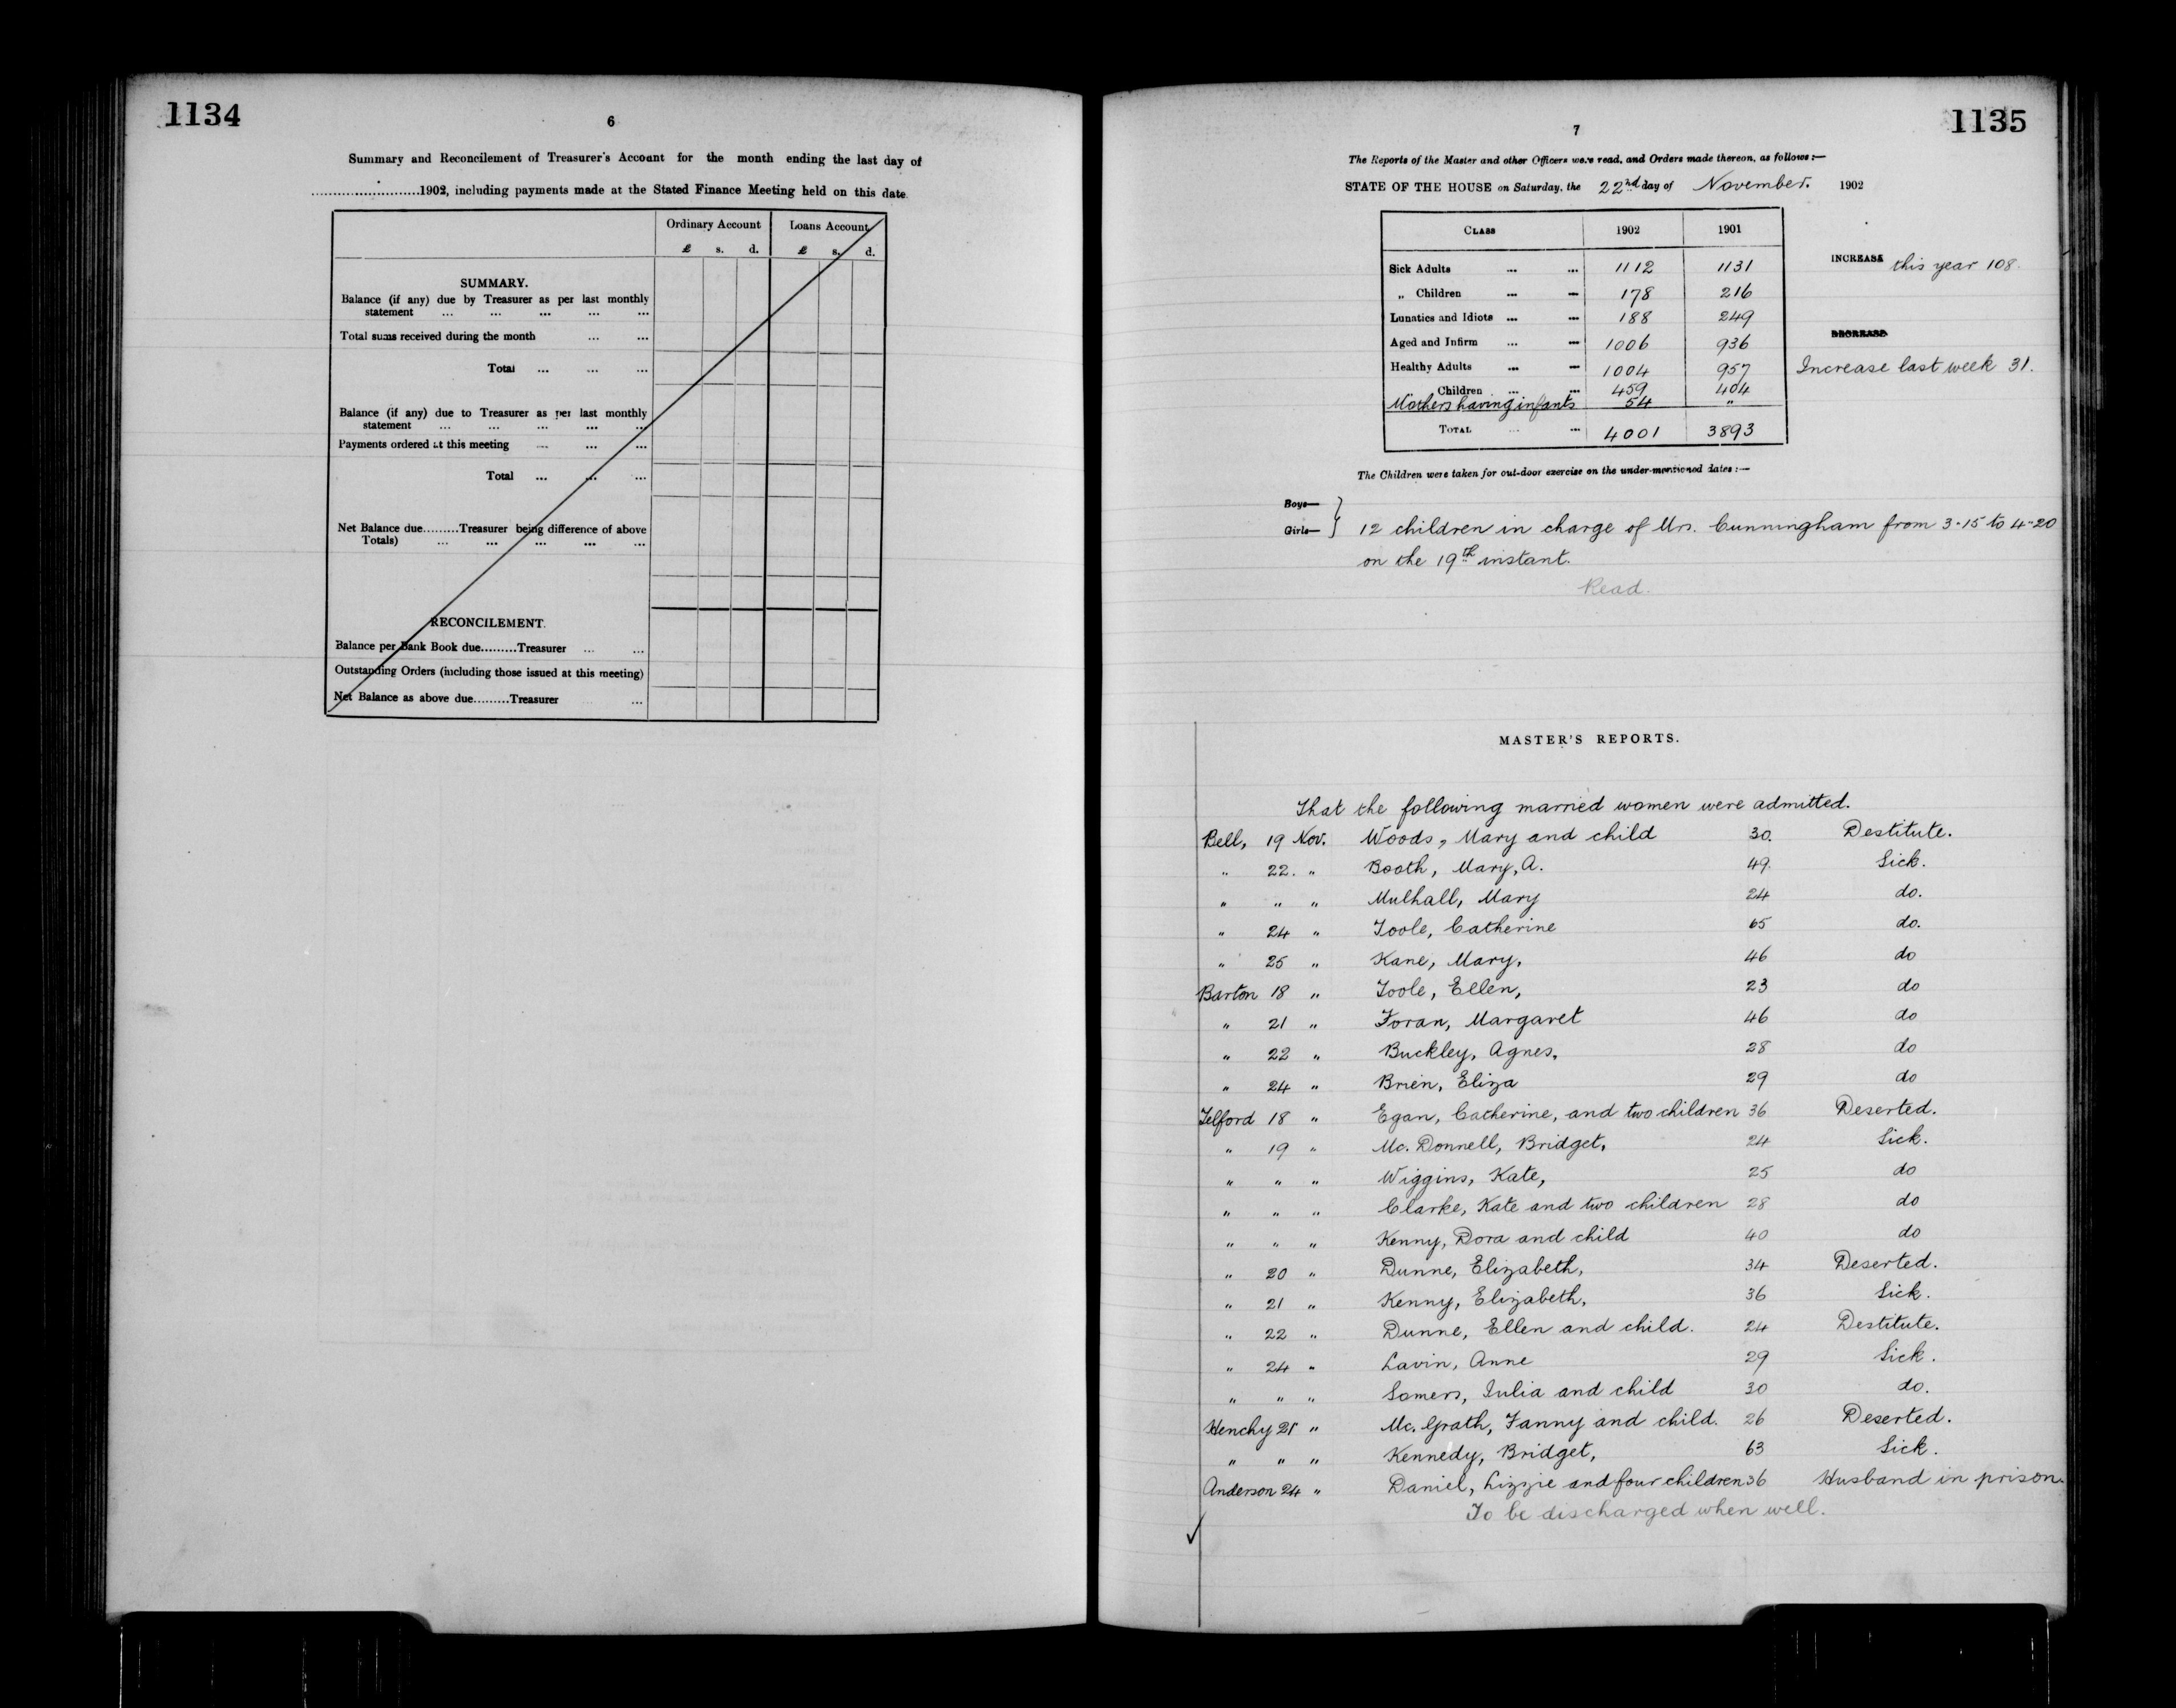 1134
6
Summary and Reconcilement of Treasurer's Account for the month ending the last day of
........................1902, including payments made at the Stated Finance Meeting held on this date.
Ordinary Account Loans Account
£ s. d. £ s. d.
SUMMARY.
Balance (if any) due by Treasurer as per last monthly
statement ... ... ... ... ...
Total sums received during the month ... ...
Total ... ... ...
Balance (if any) due to Treasurer as per last monthly
statement ... ... ... ... ...
Payments ordered at this meeting ... ... ...
Total ... ... ...
Net Balance due.........Treasurer being difference of above
Totals) ... ... ... ... ...
RECONCILEMENT.
Balance per Bank Book due.........Treasurer ... ...
Outstanding Orders (including those issued at this meeting)
Net Balance as above due.........Treasurer ... ...
1135
7
The Reports of the Master and other Officers were read, and Orders made thereon, as follows:—
STATE OF THE HOUSE on Saturday, the 22nd day of November. 1902
CLASS 1902 1901
Sick Adults ... ... 1112 1131
„ Children ... ... 178 216
Lunatics and Idiots ... ... 188 249
Aged and Infirm ... ... 1006 936
Healthy Adults ... ... 1004 957
Children ... ... 459 404
Mothers having infants 54 "
TOTAL ... ... 4001 3893
INCREASE this year 108.
DECREASE
Increase last week 31.
The Children were taken for out-door exercise on the under-mentioned dates:—
Boys—
Girls— } 12 children in charge of Mrs. Cunningham from 3-15 to 4-20
on the 19th instant.
Read.
MASTER'S REPORTS.
That the following married women were admitted.
Bell, 19 Nov. Woods, Mary and child 30. Destitute.
" 22. " Booth, Mary, A. 49. Sick.
" " " Mulhall, Mary 24 do.
" 24 " Toole, Catherine 65 do.
" 25 " Kane, Mary, 46 do
Barton 18 " Toole, Ellen, 23 do
" 21 " Foran, Margaret 46 do
" 22 " Buckley, Agnes, 28 do
" 24 " Brien, Eliza 29 do
Telford 18 " Egan, Catherine, and two children 36 Deserted.
" 19 " Mc. Donnell, Bridget, 24 Sick.
" " " Wiggins, Kate, 25 do
" " " Clarke, Kate and two children 28 do
" " " Kenny, Dora and child 40 do
" 20 " Dunne, Elizabeth, 34 Deserted.
" 21 " Kenny, Elizabeth, 36 Sick.
" 22 " Dunne, Ellen and child. 24 Destitute.
" 24 " Lavin, Anne 29 Sick.
" " " Somers, Julia and child 30 do.
Henchy 21 " Mc. Grath, Fanny and child. 26 Deserted.
" " " Kennedy, Bridget, 63 Sick.
Anderson 24 " Daniel, Lizzie and four children 36 Husband in prison.
To be discharged when well.